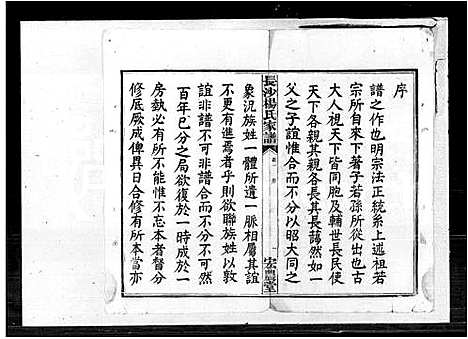 序
譜之作也明宗法正統系上述祖若
宗所自來下著子若孫所從出也古
大人視天下皆同胞及輔世長民使
天下各親其親各長其長藹然如一
父之子誼惟合而不分以昭大同之
長沙楊氏家譜
卷一
序
宏農堂
象況族姓一體所遺一脈相屬其誼
不更有進焉者乎則欲聯族姓以敦
誼非譜不可顧譜合而不分不分於
百年已分之局欲復於一時成譜之
房埶必有所不能惟不忘本者督分
修底厥成俾異日合修有所本當亦